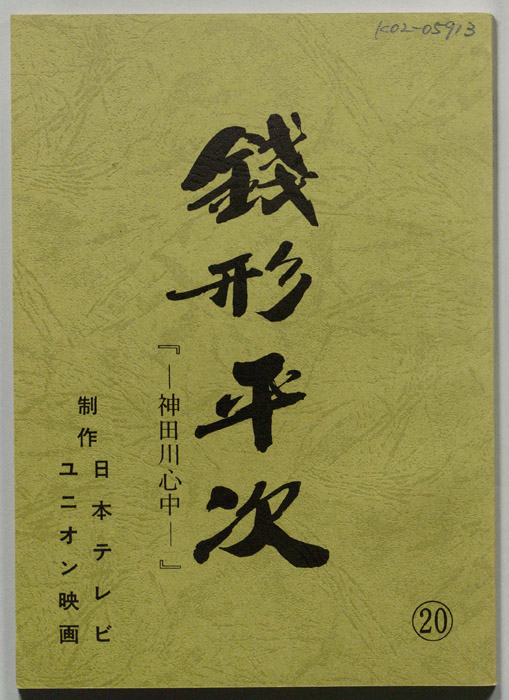 K02-05913
銭形平次
『―神田川心中―』
制作
日本テレビ
ユニオン映画
⑳